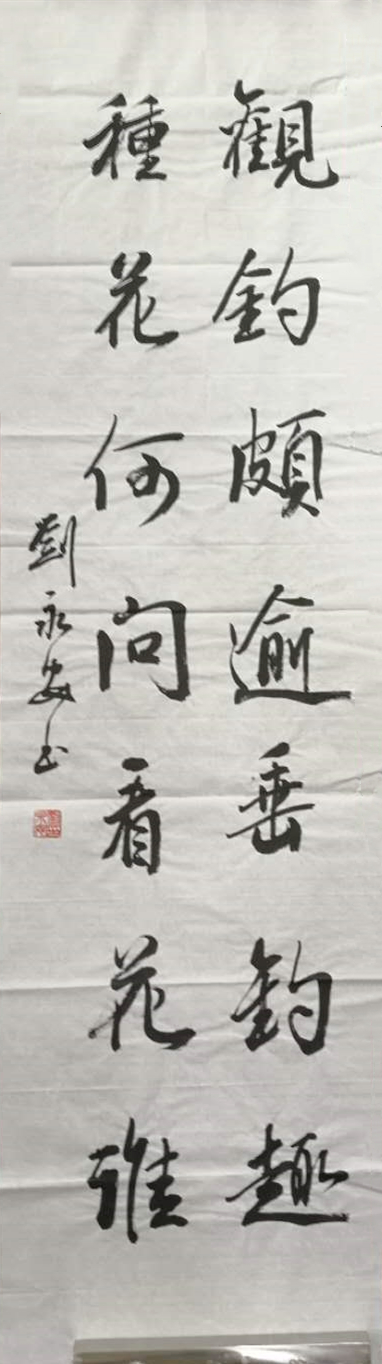 觀釣頗逾垂釣趣
種花何問看花誰
劉永安书